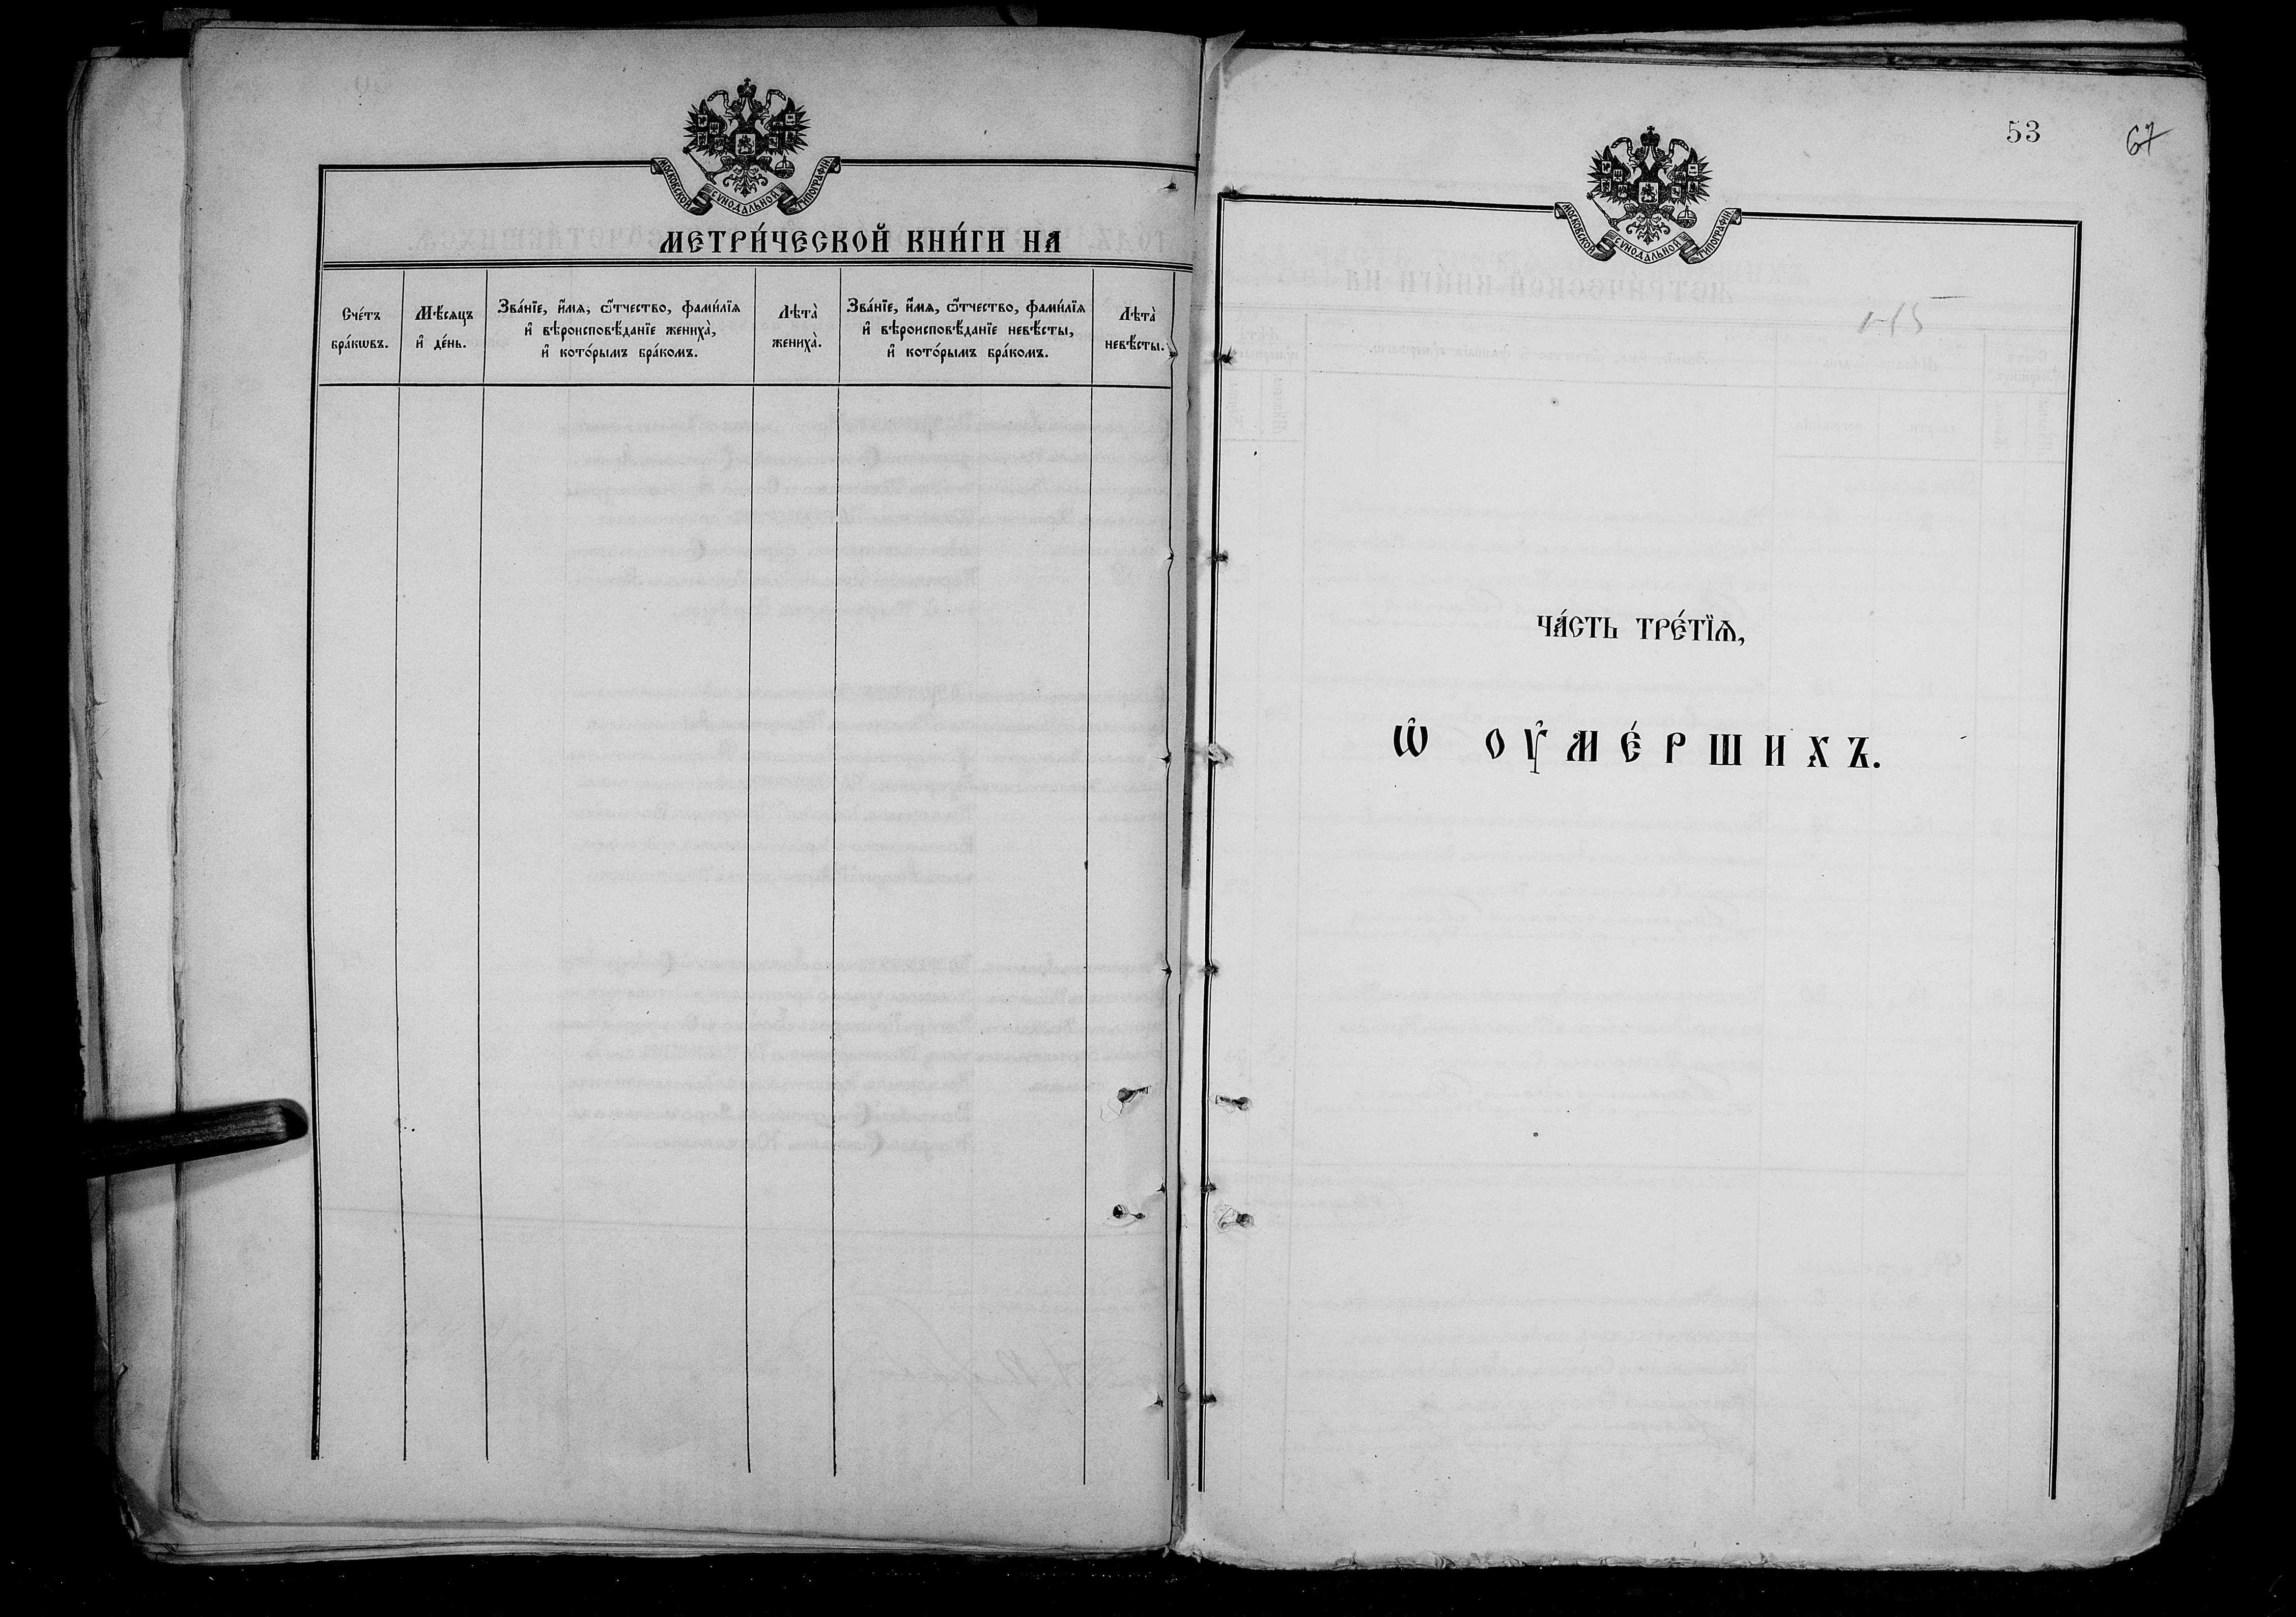 МОСКОВСКОЙ СѴНОДАЛЬНОЙ ТИПОГРАФІИ
МЕТРИ́ЧЕСКОЙ КНИ́ГИ НА
Сче́тъ
бра́кѡвъ.
Мѣ́сяцъ
и҆ де́нь.
Зва́нїе, и҆́мя, ѻ҆́тчество, фами́лїя
и҆ вѣроисповѣ́данїе жениха̀,
и҆ кото́рымъ бра́комъ.
Лѣта̀
жениха̀.
Зва́нїе, и҆́мя, ѻ҆́тчество, фами́лїя
и҆ вѣроисповѣ́данїе невѣ́сты,
и҆ кото́рымъ бра́комъ.
Лѣта̀
невѣ́сты.
53
67
МОСКОВСКОЙ СѴНОДАЛЬНОЙ ТИПОГРАФІИ
ЧА́СТЬ ТРЕ́ТЇѦ,
Ѡ҆ ОУ҆МЕ́РШИХЪ.